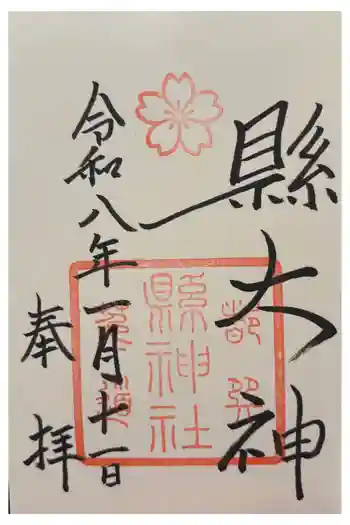 縣大神
縣神社
令和八年一月十一日
奉拝